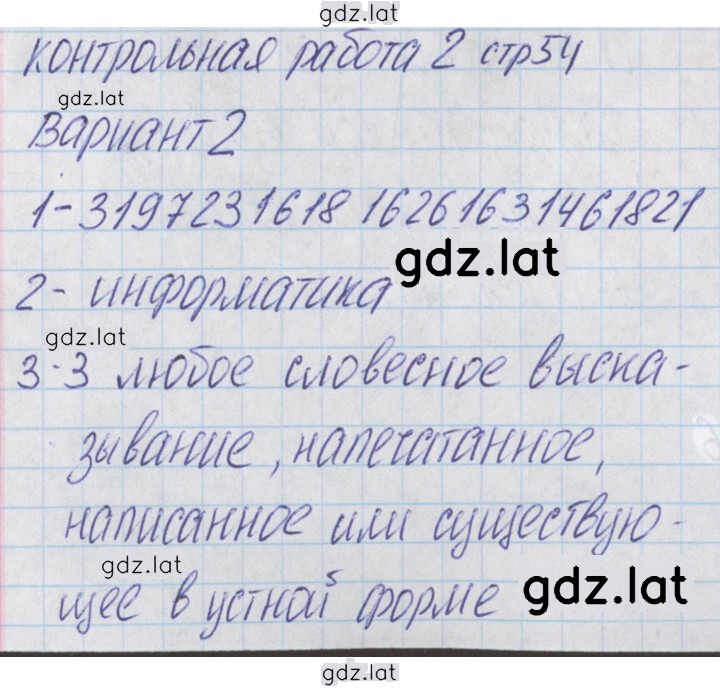 gdz.lat
контрольная работа 2 стр54
gdz.lat
вариант 2
1-3197231618 16261631461821
gdz.lat
2- информатика
gdz.lat
3-3 любое словесное выска-
зывание, напечатанное,
написанное или существую-
gdz.lat
щее в устной форме
gdz.lat
gdz.lat